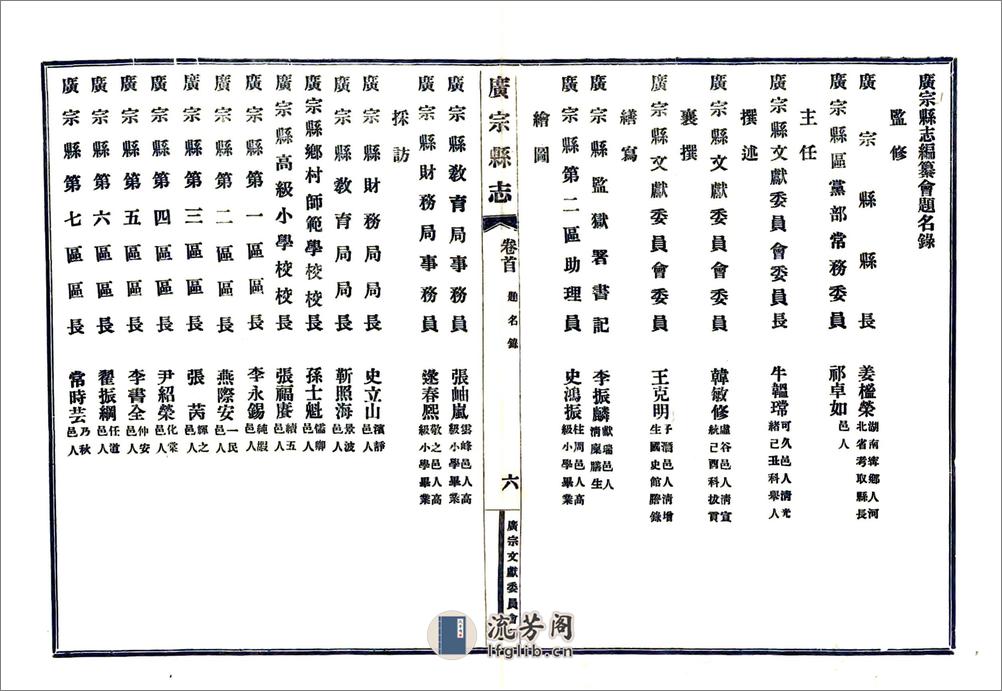 廣宗縣志編纂會題名錄
監修
廣宗縣縣長 姜榮 湖南寗鄉人河北省考取縣長
廣宗縣區黨部常務委員 祁卓如 邑人
主任
廣宗縣文獻委員會委員長 牛韞璋 可久邑人清光緒己丑科舉人
撰述
廣宗縣文獻委員會委員 韓敏修 虛谷邑人清宣統己酉科拔貢
襄撰
廣宗縣文獻委員會委員 王克明 子潛邑人清增生國史館謄錄
繕寫
廣宗縣監獄署書記 李振麟 獻瑞邑人清廩膳生
廣宗縣第二區助理員 史鴻振 柱周邑人高級小學畢業
繪圖
廣宗縣志
卷首
題名錄
六
廣宗文獻委員會
廣宗縣教育局事務員 張岫嵐 雲峰邑人高級小學畢業
廣宗縣財務局事務員 遂春熙 敬之邑人高級小學畢業
採訪
廣宗縣財務局局長 史立山 濱靜邑人
廣宗縣教育局局長 靳照海 景波邑人
廣宗縣鄉村師範學校校長 孫士魁 儒卿邑人
廣宗縣高級小學校校長 張福賡 續五邑人
廣宗縣第一區區長 李永錫 純嘏邑人
廣宗縣第二區區長 燕際安 一民邑人
廣宗縣第三區區長 張芮 輝之邑人
廣宗縣第四區區長 尹紹榮 化棠邑人
廣宗縣第五區區長 李書全 仲安邑人
廣宗縣第六區區長 翟振綱 任道邑人
廣宗縣第七區區長 常時芸 乃秋邑人
流芳阁
lfglib.cn